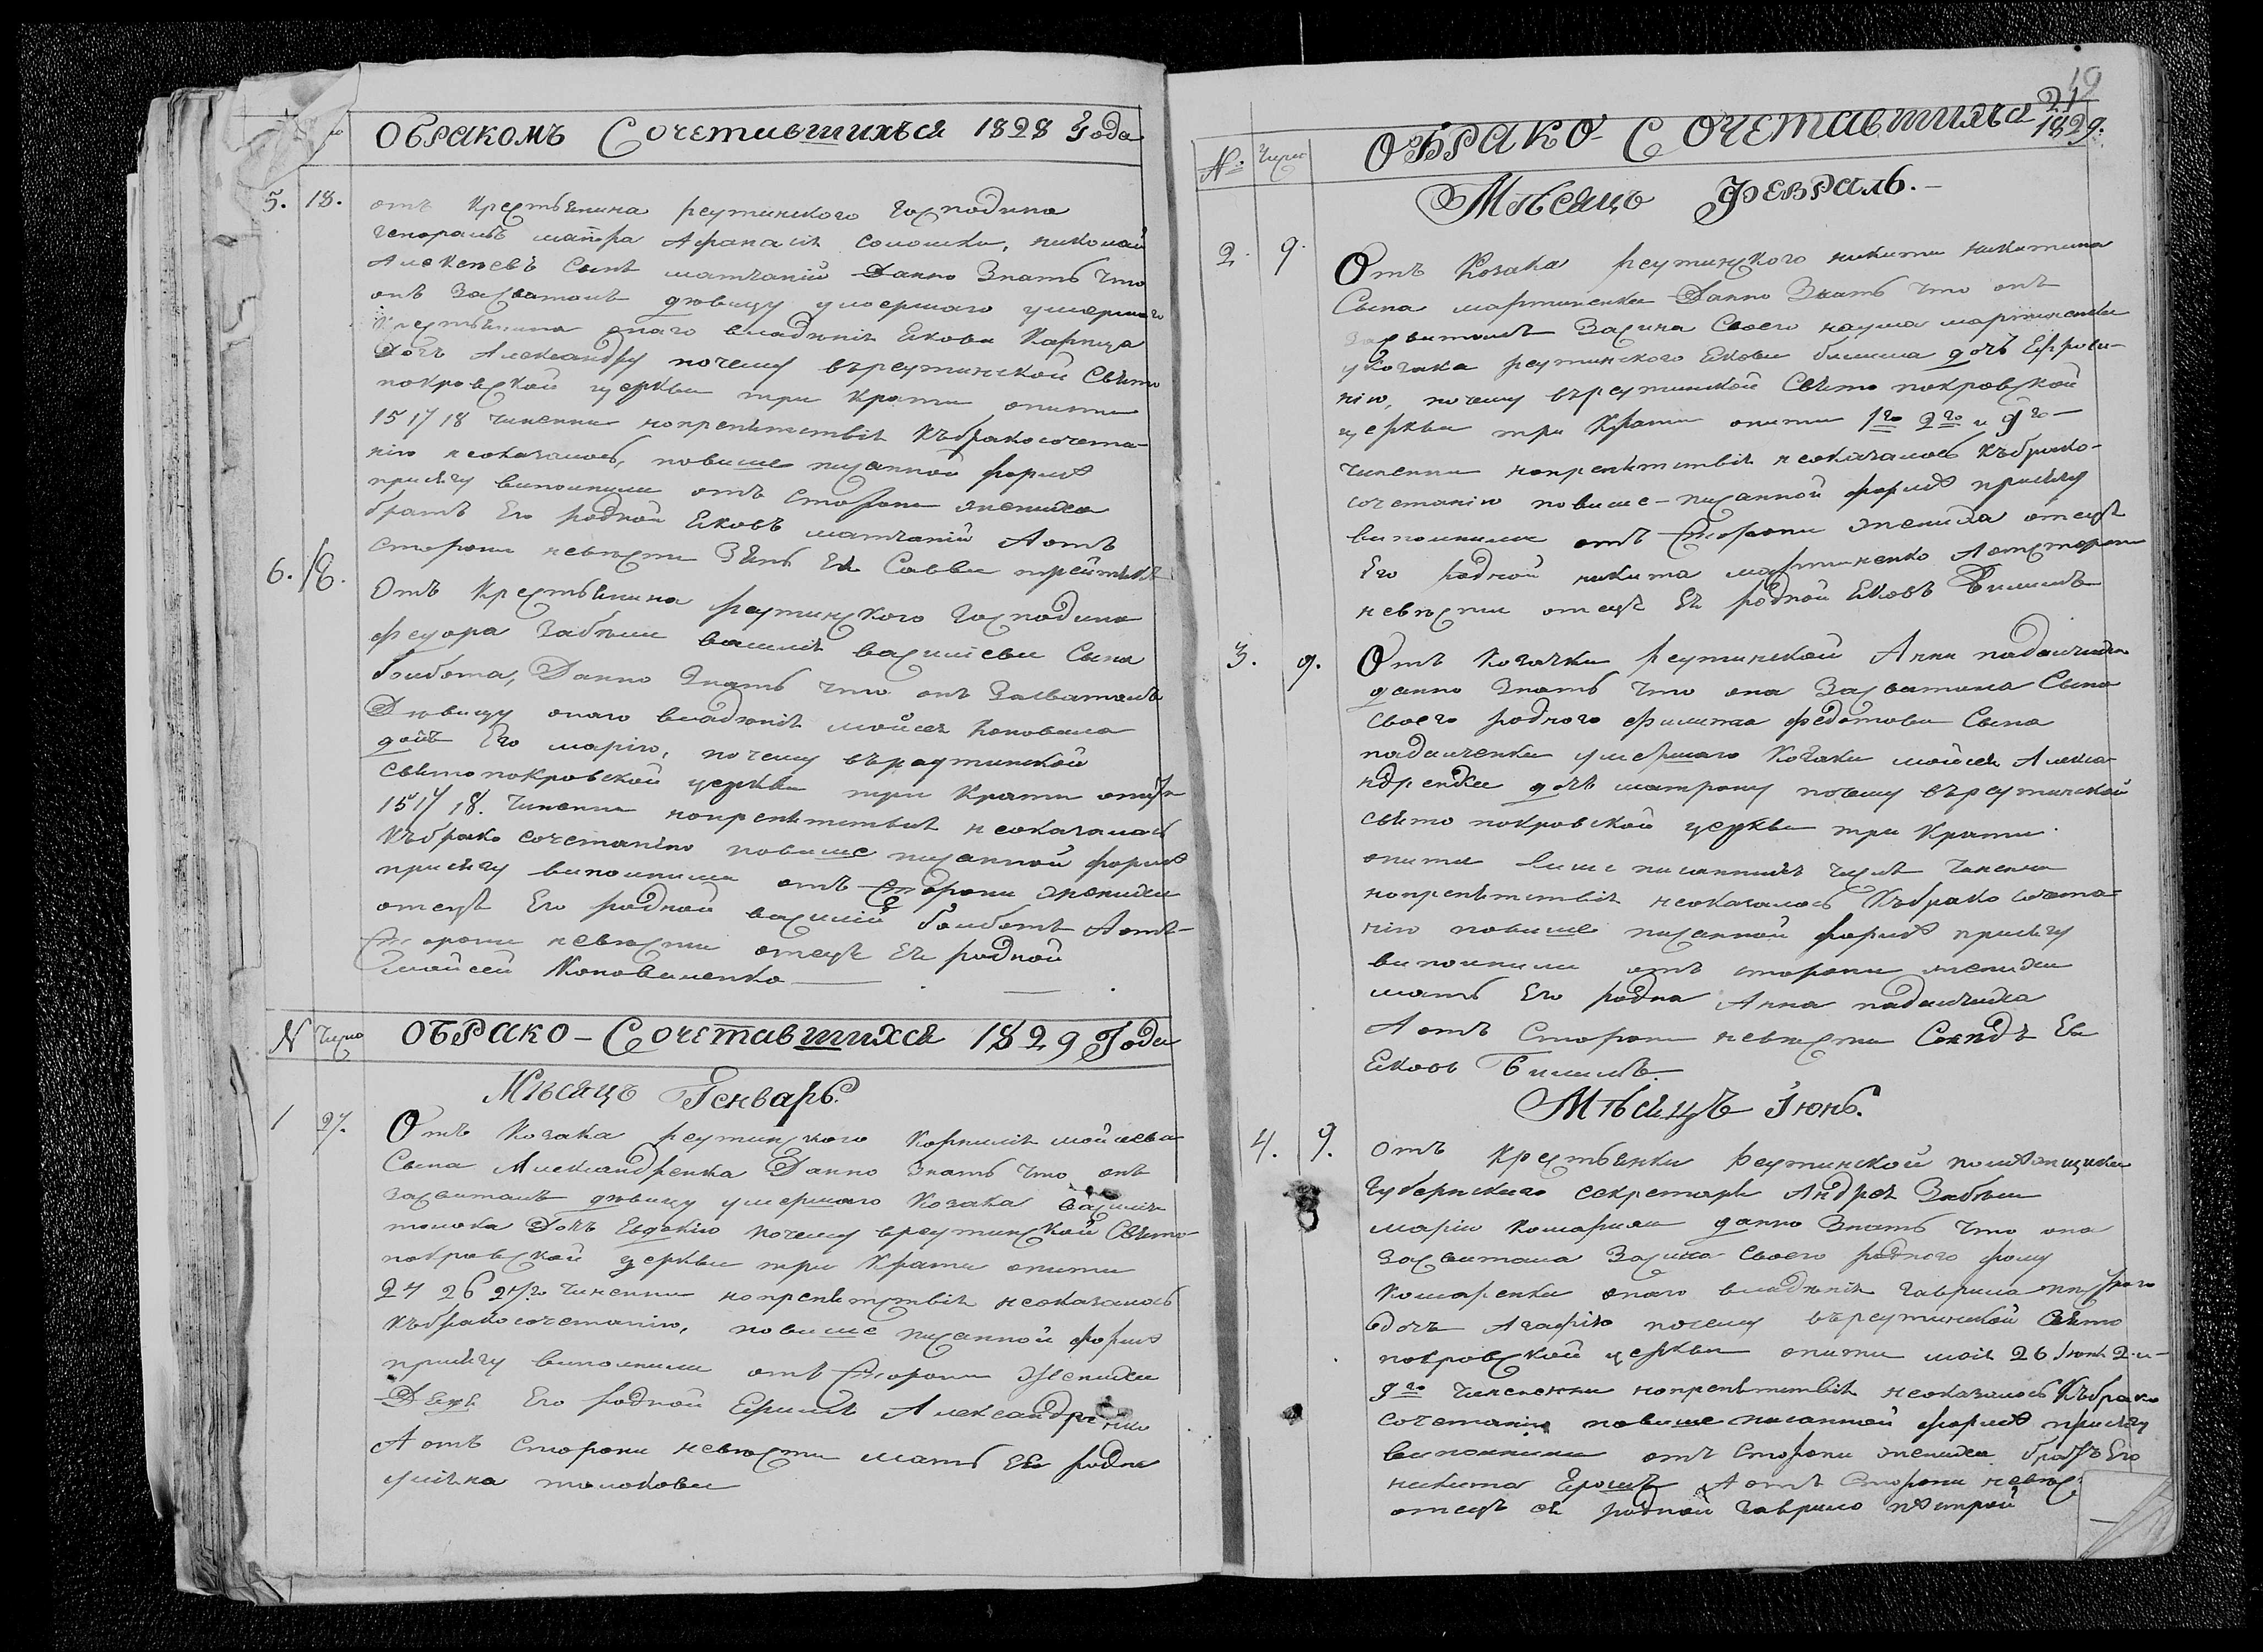 Обракомъ Сочетавшихъся 1828 Года
5. 18. отъ Крестьянина реутинского Господина
генералъ маиора Афанасія соломки, николай
Алексеевъ Сынъ матчаній Данно Знать что
онъ Засваталъ дѣвицу умершаго
Крестьянина онаго владѣнія Якова
Дочъ Александру почему въреутинской Свято
покровской церкви три Крати опити
15 17 18 чиненни нопрепятствія Къбракосочета-
нію неоказалось, повише писанной формѣ
присягу виполнили отъ Сторони жениха
братъ Его родной Яковъ матчаній Аотъ
сторони невѣсти Зять Ея Савва
6. 18. Отъ Крестьянина реутинского Господина
феодора Забѣли василія василіеви Сына
болбота, Данно Знать что онъ Засваталъ
Дѣвицу онаго владѣнія мойсея Коновала
дочъ Его марію, почему въреутинской
святопокровской церкви три Крати опити
15 17 18. Чиненни нопрепятствія неоказалось
Къбрако сочетанію повише писанной формѣ
присягу виполнили отъ Сторони жениха
отецъ Его родной василій болботъ Аотъ
Сторони невѣсти отецъ Ея родной
Мойсей Коноваленко
N Число ОБРАКО-Сочетавшихся 1829 Года
Мѣсяцъ Генварь.
1 27. Отъ Козака реутинского Корнилія мойсева
Сына Александренка Данно знать что онъ
засваталъ дѣвицу умершаго Козака василія
толока Дочъ Евдокію почему вреутинской Свято-
покровской церкви три Крати опити
24 26 27го чиненни нопрепятствія неоказалось
Къбракосочетанію, повише писанной формѣ
присягу виполнили отъ Сторони Жениха
Дядя Его родной Александренко
Аотъ Сторони невѣсти мать Ея родна
уляна толокова
19
21
ОБРАКО-СОЧЕТАВШИХСЯ 1829.
№. Число
Мѣсяцъ Февраль.
2. 9. Отъ Козака реутинского никити никитина
Сына мартиненка Данно Знать что онъ
засваталъ Засина Своего наума мартиненка
укозака реутинского Якова билима дочъ Ефроси-
нію, почему въреутинской Свято покровской
церкви три Крати опити 1го 2го и 9го
чиненни нопрепятствія неоказалось Къбрако-
сочетанію повише-писанной формѣ присягу
виполнили отъ Сторони жениха отецъ
Его родной никита мартиненко Аотъсторони
невѣсти отецъ Ея родной Яковъ Билимъ
3. 9. Отъ Козачки реутинской Анни
данно Знать что она Засватала Сына
своего родного филипа федотови Сына
падалченка умершаго Козака мойсея Алекса-
ндренка дочъ матрону почему въреутинской
свято покровской церкви три Крати
опити више писаннихъ Числъ Чинени
нопрепятствія неоказалось Къбрако сочета-
нію повише писанной формѣ присягу
виполнили отъ сторони жениха
мать Его родна Анна падалчиха
Аотъ Сторони невѣсти Ея
Яковъ Билимъ.
Мѣсяцъ Іюнь.
4. 9. отъ Крестьянки Реутинской помѣщика
Губернского секретаря Андрея Забѣли
марии комарихи данно Знать что она
засватала Засина своего родного фому
комаренка онаго владѣнія гаврила
дочъ Агафію почему въреутинской Свято
покровской церкви опити мая 26 Іюня 2 и
9го Чиненни нопрепятствія неоказалось Къбрако
сочетанію повише писанной формѣ присягу
виполнили отъ Сторони жениха братъ Его
никита Аотъ Сторони невѣс
отецъ ея родной гаврило